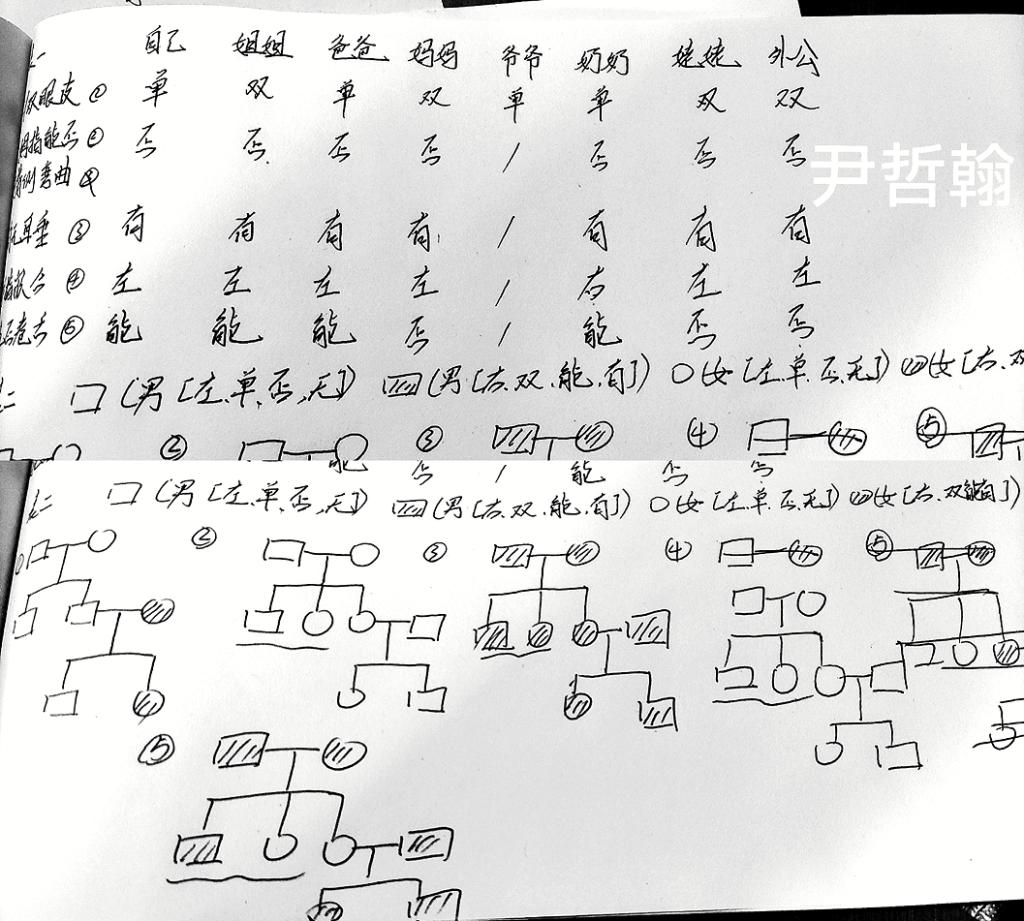 自己 姐姐 爸爸 妈妈 爷爷 奶奶 姥姥 外公
双眼皮 ① 单 双 单 双 单 单 双 双
拇指能否 ② 否 否 否 否 / 否 否 否
弯曲
尹哲翰
耳垂 ③ 有 有 有 有 / 有 有 有
④ 左 左 左 左 / 右 左 左
⑤ 能 能 能 否 / 能 否 否
二 (男[左.单.否,无]) (男[右.双.能.有]) (女[左.单.否.无]) (女[右.双
② ③ ④ ⑤
能 否 / 能 否 否
二 (男[左.单.否,无]) (男[右.双.能.有]) (女[左.单.否.无]) (女[右.双能有])
② ③ ④ ⑤
⑤